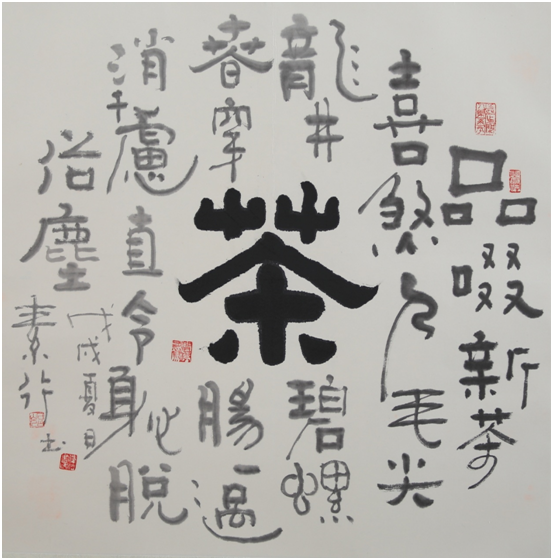 品啜新茶
喜煞人毛尖
龍井碧螺
春穿腸一過
茶
消千慮直令身心脫
俗塵
戊戌夏月
素行书